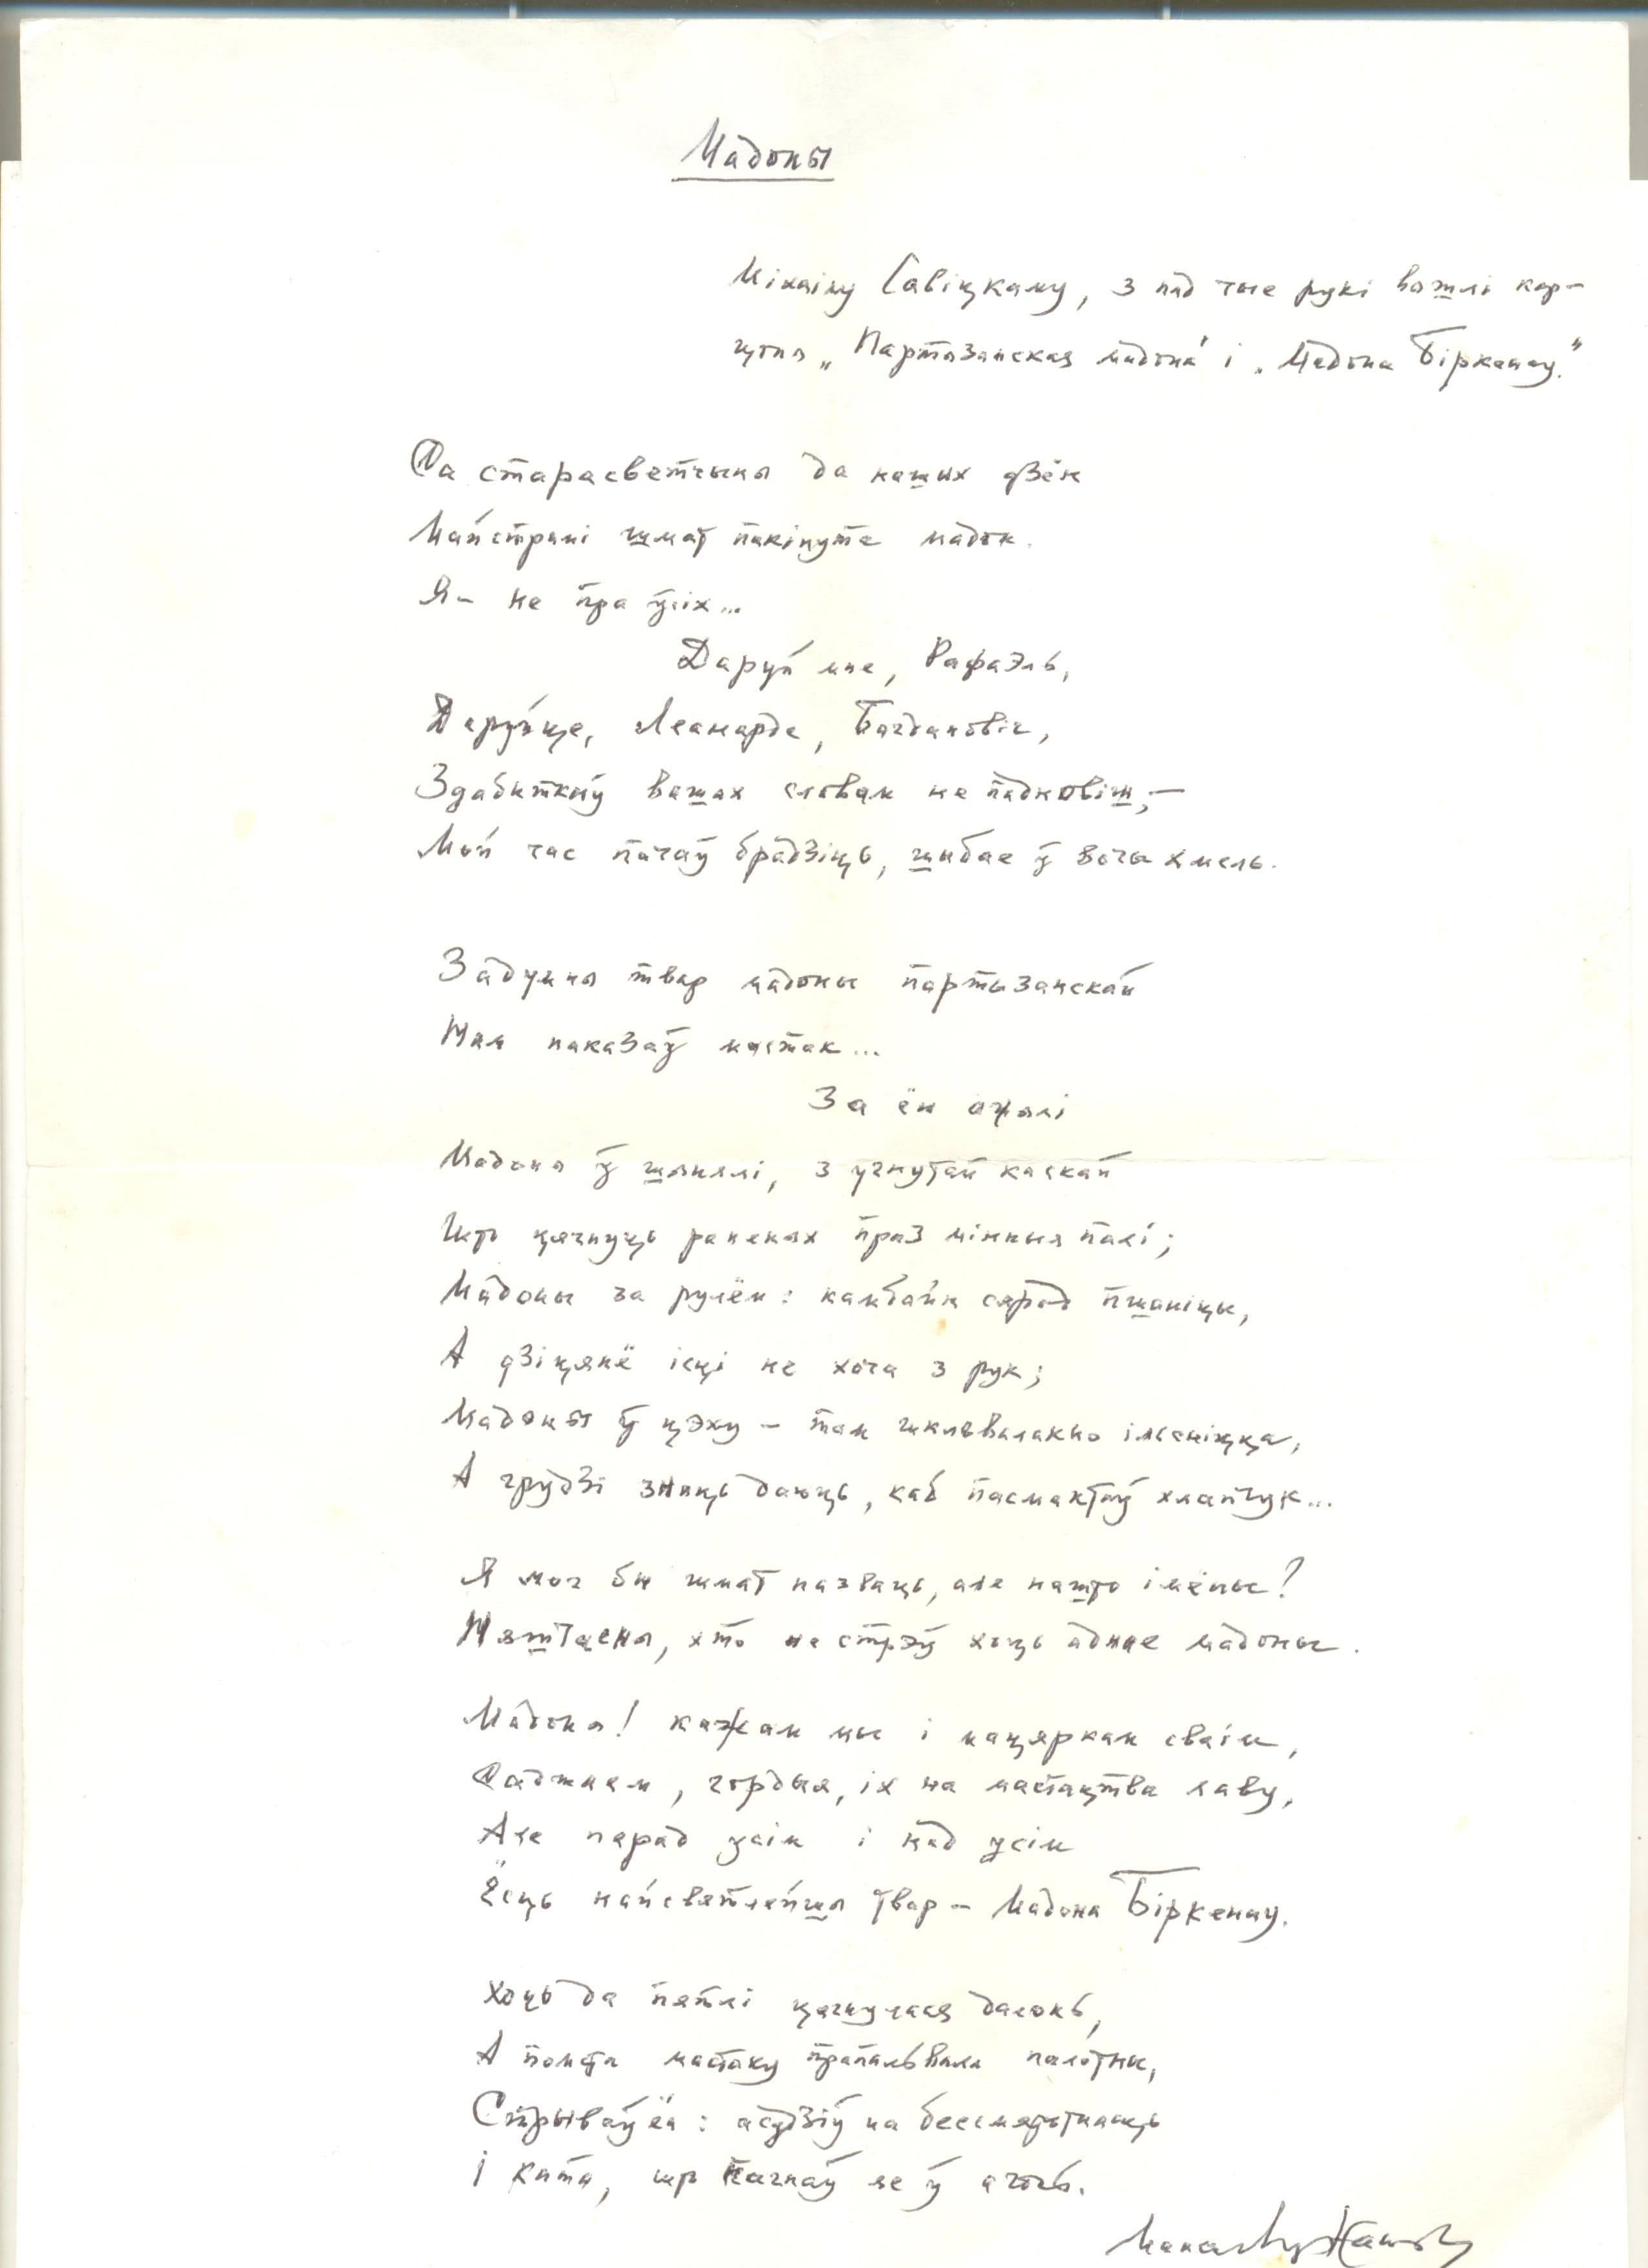 Мадоны
Міхаілу Савіцкаму, з пад чые рукі выйшлі кар-
ціны „Партызанская мадонна" і „Мадонна Біркенау."
Са старасветчыны да нашых дзён
Майстрамі шмат пакінута мадон.
Я – не пра ўсіх...
Даруй мне, Рафаэль,
Даруйце, Леанарда, Багдановіч,
Здабыткаў вашых словам не падновіш, –
Мой час пачаў брадзіць, шыбае ў вочы хмель.
Задумны твар мадоны партызанскай
Нам паказаў мастак...
За ёй ацалі
Мадоны ў шынялі, з угнутай каскай
Што цягнуць раненых праз мінныя палі;
Мадоны за рулём: камбайн сярод пшаніцы,
А дзіцянё ісці не хоча з рук;
Мадоны ў цэху – там шкловалакно ільсніцца,
А грудзі зняць даюць, каб пасмактаў хлапчук...
Я мог бы шмат назваць, але нашто імёны?
Няшчасны, хто не стрэў хоць аднае мадоны.
Мадона! кажам мы і мацяркам сваім,
Саджаем, гордыя, іх на мастацтва лаву,
Але перад усім і над усім
Ёсць найсвятлейшы твар – Мадона Біркенау.
Хоць да пятлі цягнулася далонь,
А помста мастаку прапальвала палотны,
Стрываў ён: асудзіў на бессмяротнасць
І ката, што пагнаў яе ў агонь.